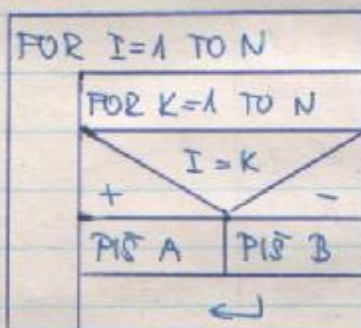 FOR I=1 TO N
FOR K=1 TO N
I=K
+ -
PIŠ A PIŠ B
↵